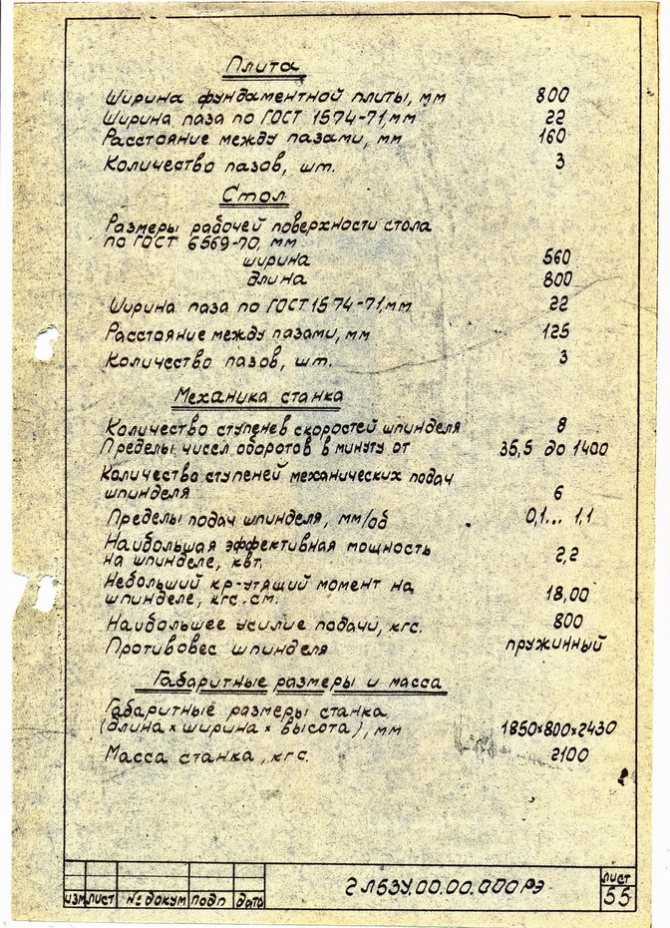 Плита
Ширина фундаментной плиты, мм 800
Ширина паза по ГОСТ 1574-71,мм 22
Расстояние между пазами, мм 160
Количество пазов, шт. 3
Стол
Размеры рабочей поверхности стола
по ГОСТ 6569-70, мм
ширина 560
длина 800
Ширина паза по ГОСТ 1574-71,мм 22
Расстояние между пазами, мм 125
Количество пазов, шт. 3
Механика станка
Количество ступенев скоростей шпинделя 8
Пределы чисел оборотов в минуту от 35,5 до 1400
Количество ступеней механических подач
шпинделя 6
Пределы подач шпинделя, мм/об 0,1... 1,1
Наибольшая эффективная мощность
на шпинделе, квт. 2,2
Небольший кр-утящий момент на
шпинделе, кгс.см. 18,00
Наибольшее усилие подачи, кгс. 800
Противовес шпинделя пружинный
Габаритные размеры и масса
Габаритные размеры станка
(длина × ширина × высота), мм 1850×800×2430
Масса станка, кгс. 2100
2Л53У.00.00.000РЭ
лист
55
изм лист № докум подп дата